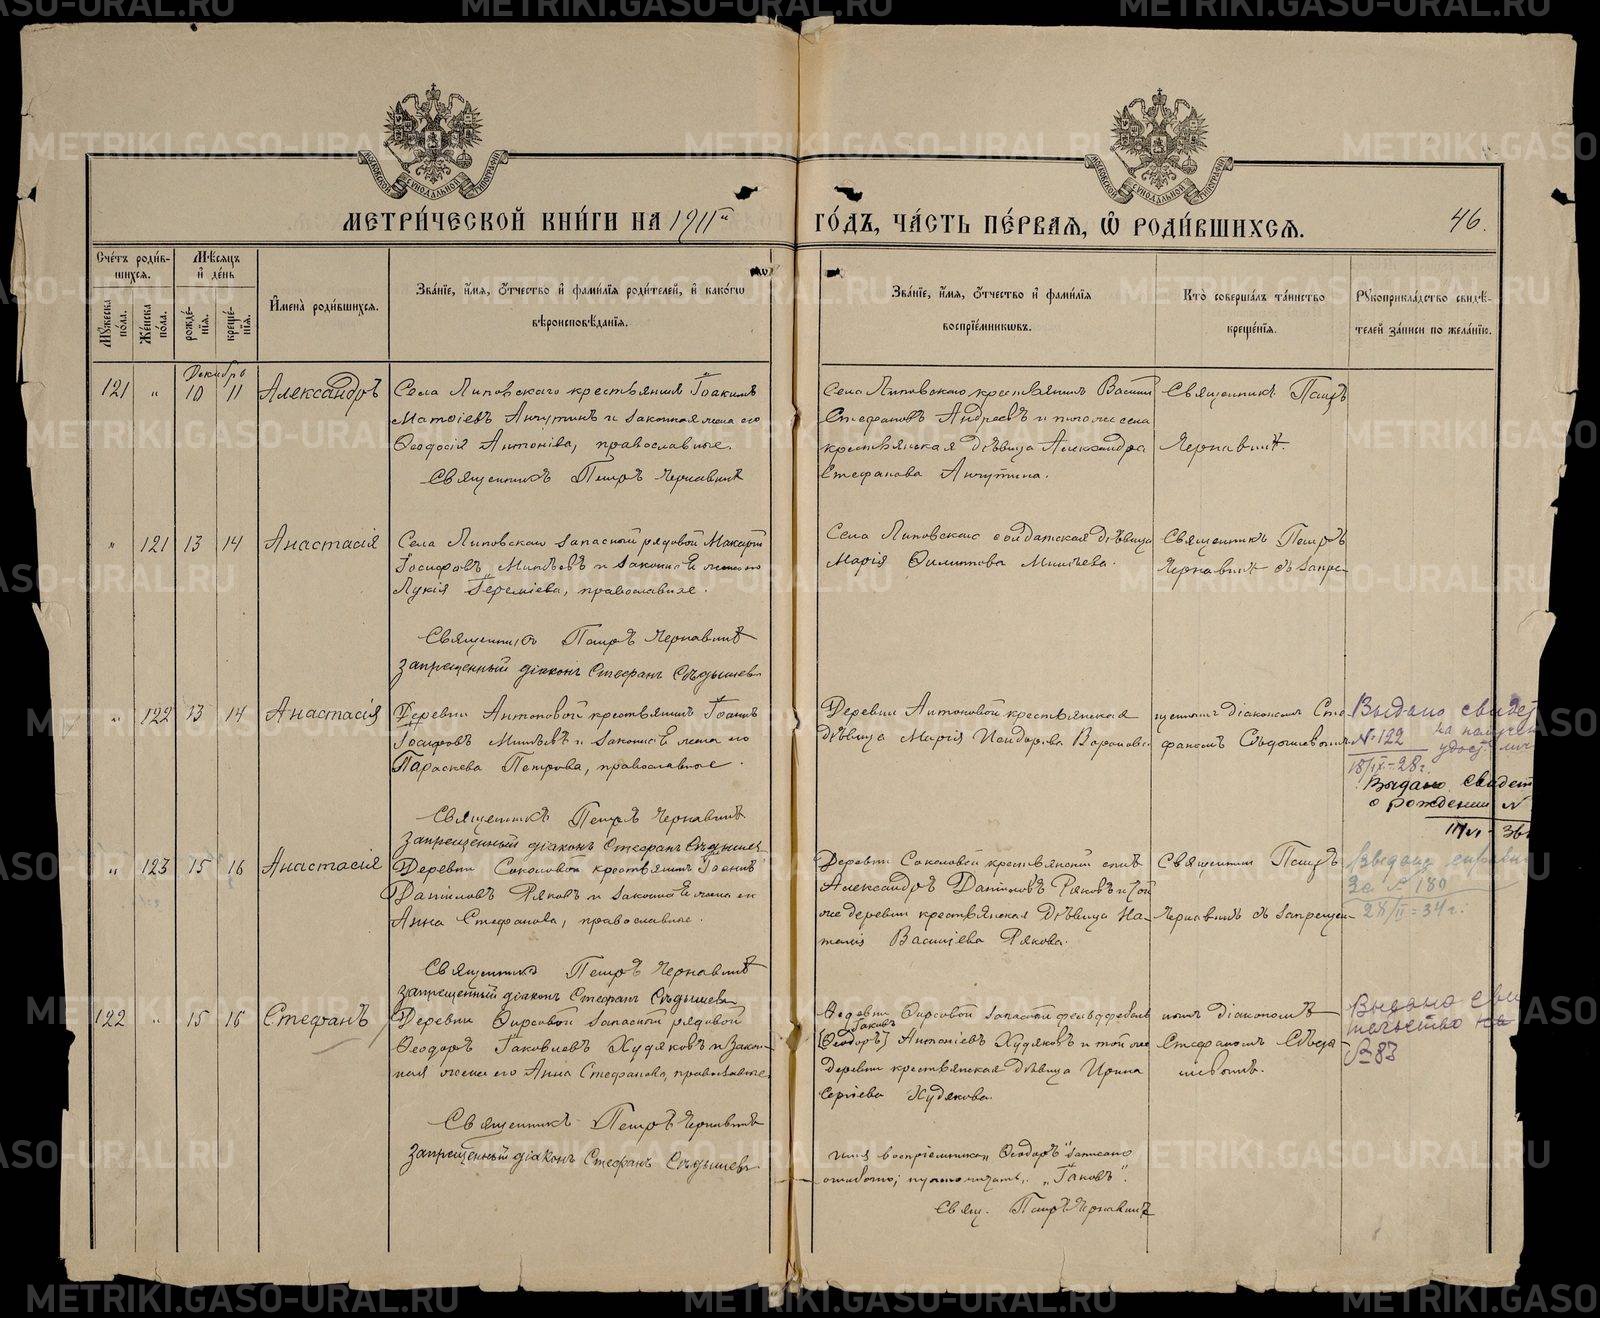 METRIKI.GASO-URAL.RU
МОСКОВСКОЙ СУНОДАЛЬНОЙ ТИПОГРАФІИ
МОСКОВСКОЙ СУНОДАЛЬНОЙ ТИПОГРАФІИ
МЕТРИ́ЧЕСКОЙ КНИ́ГИ НА 1911й
ГО́ДЪ, ЧА́СТЬ ПЕ́РВАЯ, Ѡ҆ РОДИ́ВШИХСЯ.
46.
Сче́тъ роди́в-
шихся.
Мꙋ́жеска по́ла.
Же́нска по́ла.
Мѣ́сяцъ и҆ де́нь
рожде́-нїя.
креще́-нїя.
И҆мена̀ роди́вшихся.
Зва́нїе, и҆́мя, ѻ҆́тчество и҆ фами́лїя роди́телей, и҆ како́гѡ
вѣроисповѣ́данїя.
Зва́нїе, и҆́мя, ѻ҆́тчество и҆ фами́лїя
воспрїе́мниковъ.
Кто̀ соверша́лъ та́инство
креще́нїя.
Рꙋкоприкла́дство свидѣ́-
телей за́писи по жела́нїю.
Декабрь
121 " 10 11 Александръ
Села Липовскаго крестьянинъ Іоакимъ
Матѳіевъ Анчутинъ и законная жена его
Ѳеодосія Антоніева, православные.
Священникъ Петръ Чернавинъ
Села Липовскаго крестьянинъ Васили
Стефановъ Андреевъ и того же села
крестьянская дѣвица Александра
Стефанова Анчутина.
Священникъ Петръ
Чернавинъ.
" 121 13 14 Анастасія
Села Липовскаго запасный рядовой Макарій
Іосифовъ Минѣевъ и законная жена его
Лукія Іереміева, православные.
Священникъ Петръ Чернавинъ
Запрещенный діаконъ Стефанъ Сѣдышевъ
Села Липовскаго солдатская дѣвица
Марія Филиппова Минѣева.
Священникъ Петръ
Чернавинъ съ запре-
" 122 13 14 Анастасія
Деревни Антоновой крестьянинъ Іоаннъ
Іосифовъ Минѣевъ и законная жена его
Параскева Петрова, православные.
Священникъ Петръ Чернавинъ
Запрещенный діаконъ Стефанъ Сѣдышев
Деревни Антоновой крестьянская
дѣвица Марія Исидорова Воронова
щеннымъ діакономъ Сте
фаномъ Сѣдышевымъ.
Выдано свидет
№ 122 на получен
удост. лич
18/IX-28 г.
Выдано свидет
о рождении N
" 123 15 16 Анастасія
Деревни Соколовой крестьянинъ Іоаннъ
Даніиловъ Ряковъ и законная жена его
Анна Стефанова, православные.
Священникъ Петръ Чернавинъ
Запрещенный діаконъ Стефанъ Сѣдышевъ
Деревни Соколовой крестьянскій сынъ
Александръ Даніиловъ Ряковъ и той
же деревни крестьянская дѣвица На-
талія Василіева Рякова.
Священникъ Петръ
Чернавинъ съ запрещен-
Выдана справк
За № 180
28/II-34 г.
122 " 15 16 Стефанъ
Деревни Фирсовой запасный рядовой
Ѳеодоръ Іаковлевъ Худяковъ и закон-
ная жена его Анна Стефанова, православные.
Священникъ Петръ Чернавинъ
Запрещенный діаконъ Стефанъ Сѣдышевъ
Деревни Фирсовой запасный фельдфебель
Іаковъ
[Ѳеодоръ] Антоніевъ Худяковъ и той же
деревни крестьянская дѣвица Ирина
Сергіева Худякова.
нымъ діакономъ
Стефаномъ Сѣды-
шевымъ.
Выдано сви
тельство на
№ 87
имя воспріемника „Ѳеодоръ" записано
ошибочно; нужно читать: „Іаковъ".
Свящ. Петръ Чернавинъ